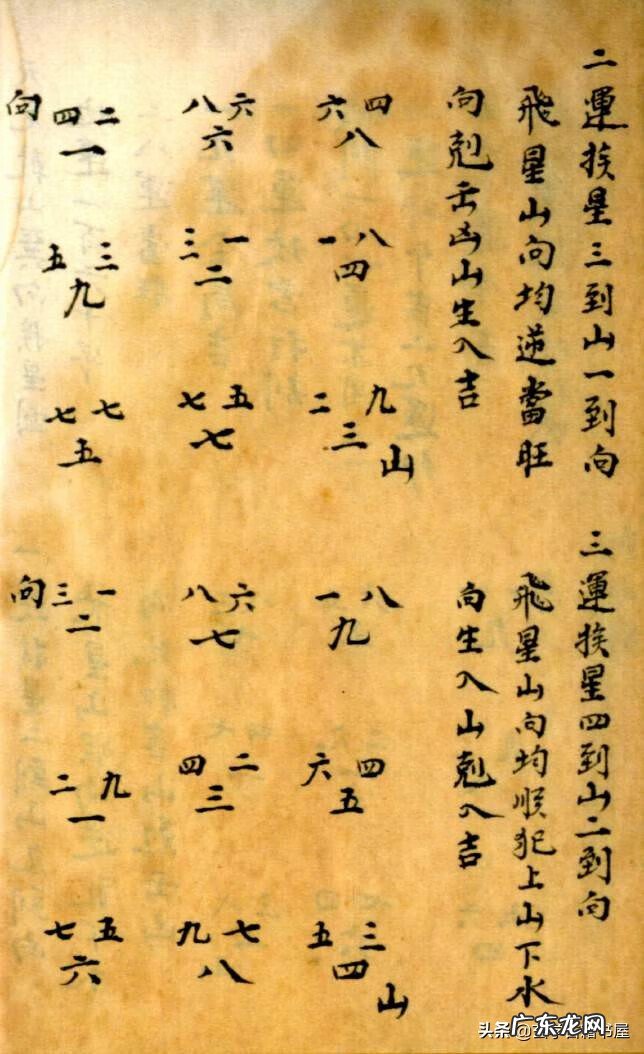 二運挨星三到山一到向
飛星山向均逆當旺
向剋出凶山生入吉
向 四二 八六 六四
一 六 八
五三 三一 一八
九 二 四
七七 七五 二九
五 七 三
山
三運挨星四到山二到向
飛星山向均順犯上山下水
向生入山剋入吉
向 三一 八六 一八
二 七 九
二九 四二 六四
一 三 五
七五 九七 五三
六 八 四
山
头条
广东龙网
书屋